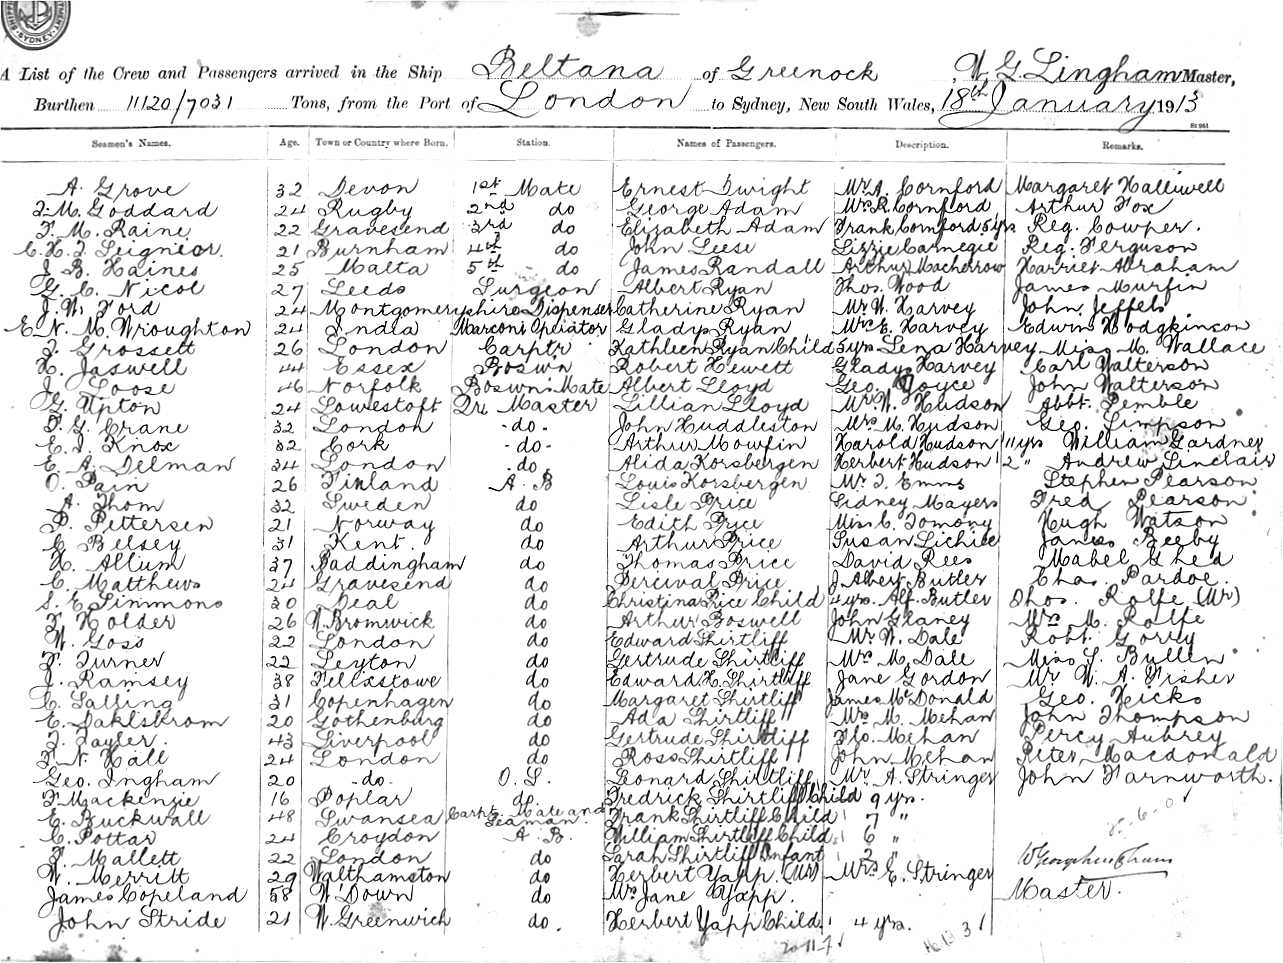 SYDNEY
A List of the Crew and Passengers arrived in the Ship Beltana of Greenock, W. G. Lingham Master,
Burthen 11120/7031 Tons, from the Port of London to Sydney, New South Wales, 18th January 1913
Seamen's Names. Age. Town or Country where Born. Station. Names of Passengers. Description. Remarks.
A. Grove 32 Devon 1st Mate Ernest Dwight Mr. A. Cornford Margaret Halliwell
F. M. Goddard 24 Rugby 2nd do George Adam Mrs R. Cornford Arthur Fox
F. M. Raine 22 Gravesend 3rd do Elizabeth Adam Frank Cornford 5 yrs Reg. Cowper.
C. H. J. Seignior. 21 Burnham 4th do John Leese Lizzie Carnegie Reg. Ferguson
J. B. Haines 25 Malta 5th do James Randall Arthur Macherrow Harriet Abraham
G. C. Nicol 27 Leeds Surgeon Albert Ryan Thos. Wood James Murfin
J. W. Ford 24 Montgomeryshire Dispenser Catherine Ryan Mr. W. Harvey John Jeffels.
E. N. M. Wroughton 24 India Marconi Operator Gladys Ryan Mrs E. Harvey Edwin Hodgkinson
J. Grossett 26 London Carptr Kathleen Ryan Child 5 yrs. Lena Harvey Miss M. Wallace
H. Jaswell 44 Essex Boswn Robert Hewett Gladys Harvey Carl Walterson
J. Loose 46 Norfolk Boswns Mate Albert Lloyd Geo. Joyce John Walterson
G. Upton 24 Lowestoft Qr. Master Lillian Lloyd Mr. W. Hudson Pemble
F. G. Crane 32 London - do - John Huddleston Mrs M. Hudson Geo. Simpson
E. J. Knox 32 Cork - do - Arthur Mowfin Harold Hudson 11 yrs William Gardney
E. A. Delman 34 London - do - Alida Korsbergen Herbert Hudson 2 " Andrew Sinclair
O. Pain 26 Finland A. B Louis Korsbergen Mr. J. Emms Stephen Pearson
A. Thom 32 Sweden do Lisle Price Sidney Mayers Fred Pearson
P. Pettersen 21 Norway do Edith Price Miss C. Tomony Hugh Watson
G. Belsey 31 Kent. do Arthur Price Susan James Beeby
H. Allum 37 Paddingham do Thomas Price David Rees Mabel
C. Matthews 24 Gravesend do Percival Price J. Albert Butler Chas. Pardoe.
S. E. Simmons 30 Deal do Christina Price Child 4 yrs. Alf. Butler Thos. Rolfe (Mr)
F. Holder 26 W. Bromwick do Arthur Boswell John Glaney Mrs M. Rolfe
W. Goss 22 London do Edward Shirtliff Mr. W. Dale Robt. Gorey
F. Turner 22 Leyton do Gertrude Shirtliff Mrs M. Dale Miss L. Bullen
J. Ramsey 38 Felixstowe do Edward H. Shirtliff Jane Gordon Mr W. A. Fisher
C. Salling 31 Copenhagen do Margaret Shirtliff James McDonald Geo. Hicks
E. Daklskrom 20 Gothenburg do Ada Shirtliff Mrs. M. Mehan John Thompson
J. Tayler. 43 Liverpool do Gertrude Shirtliff Flo. Mehan Percy Aubrey
F. N. Hall 24 London do Ross Shirtliff John Mehan Peter Macdonald
Geo. Ingham 20 - do - O. S. Leonard Shirtliff Mr. A. Stringer John Farnworth.
F. Mackenzie 16 Poplar do. Fredrick Shirtliff Child 9 yrs.
E. Buckwall 48 Swansea Carptr Mate and Seaman. Frank Shirtliff Child 7 "
C. Pottar 24 Croydon A. B. William Shirtliff Child 6 "
F. Mallett 22 London do Sarah Shirtliff Infant 2 "
W. Merritt 29 Walthamston do Herbert Yapp (Mr) Mrs E. Stringer
James Copeland 58 W. Down do Mrs Jane Yapp. Master.
John Stride 21 W. Greenwich do. Herbert Yapp Child. 4 yrs.